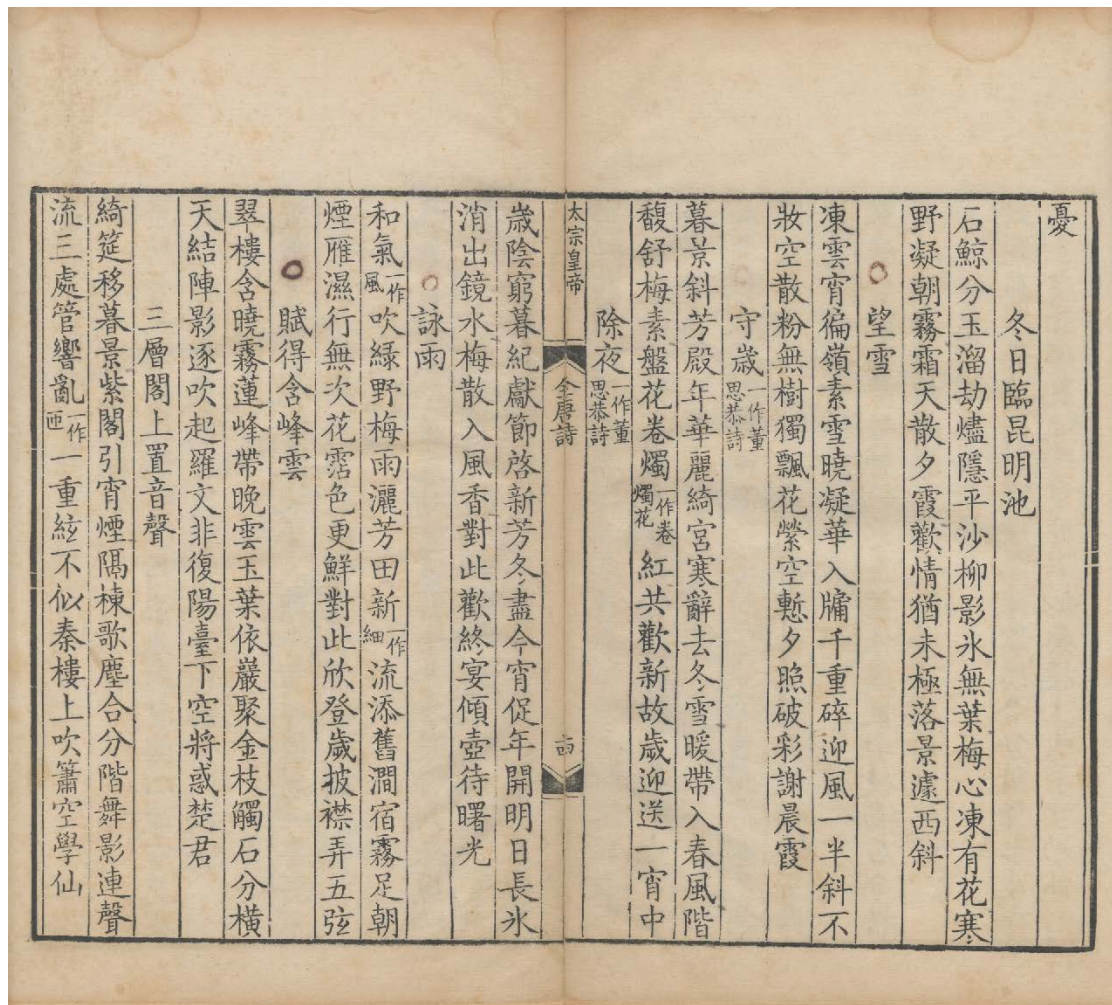 憂
冬日臨昆明池
石鯨分玉溜劫燼隱平沙柳影氷無葉梅心凍有花寒
野凝朝霧霜天散夕霞歡情猶未極落景遽西斜
望雪
凍雲宵徧嶺素雪曉凝華入牗千重碎迎風一半斜不
妝空散粉無樹獨飄花縈空慙夕照破彩謝晨霞
守歲一作董思恭詩
暮景斜芳殿年華麗綺宮寒辭去冬雪暖帶入春風階
馥舒梅素盤花卷燭一作卷燭花紅共歡新故歲迎送一宵中
除夜一作董思恭詩
太宗皇帝
全唐詩
十四
歲陰窮暮紀獻節啓新芳冬盡今宵促年開明日長氷
消出鏡水梅散入風香對此歡終宴傾壺待曙光
詠雨
和氣一作風吹綠野梅雨灑芳田新一作細流添舊澗宿霧足朝
煙雁濕行無次花霑色更鮮對此欣登歲披襟弄五弦
賦得含峰雲
翠樓含曉霧蓮峰帶晚雲玉葉依巖聚金枝觸石分橫
天結陣影逐吹起羅文非復陽臺下空將惑楚君
三層閣上置音聲
綺筵移暮景紫閣引宵煙隔棟歌塵合分階舞影連聲
流三處管響亂一作匝一重絃不似秦樓上吹簫空學仙